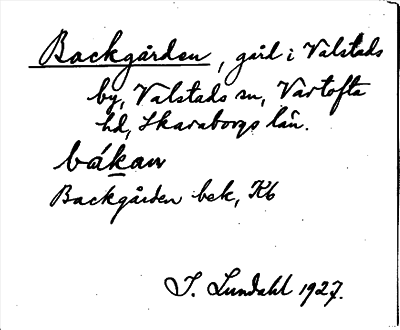 Backgården, gård i Valstads
by, Valstads sn, Vartofta
hd, Skaraborgs län.
bákan
Backgården bek, Kb
I. Lundahl 1927.